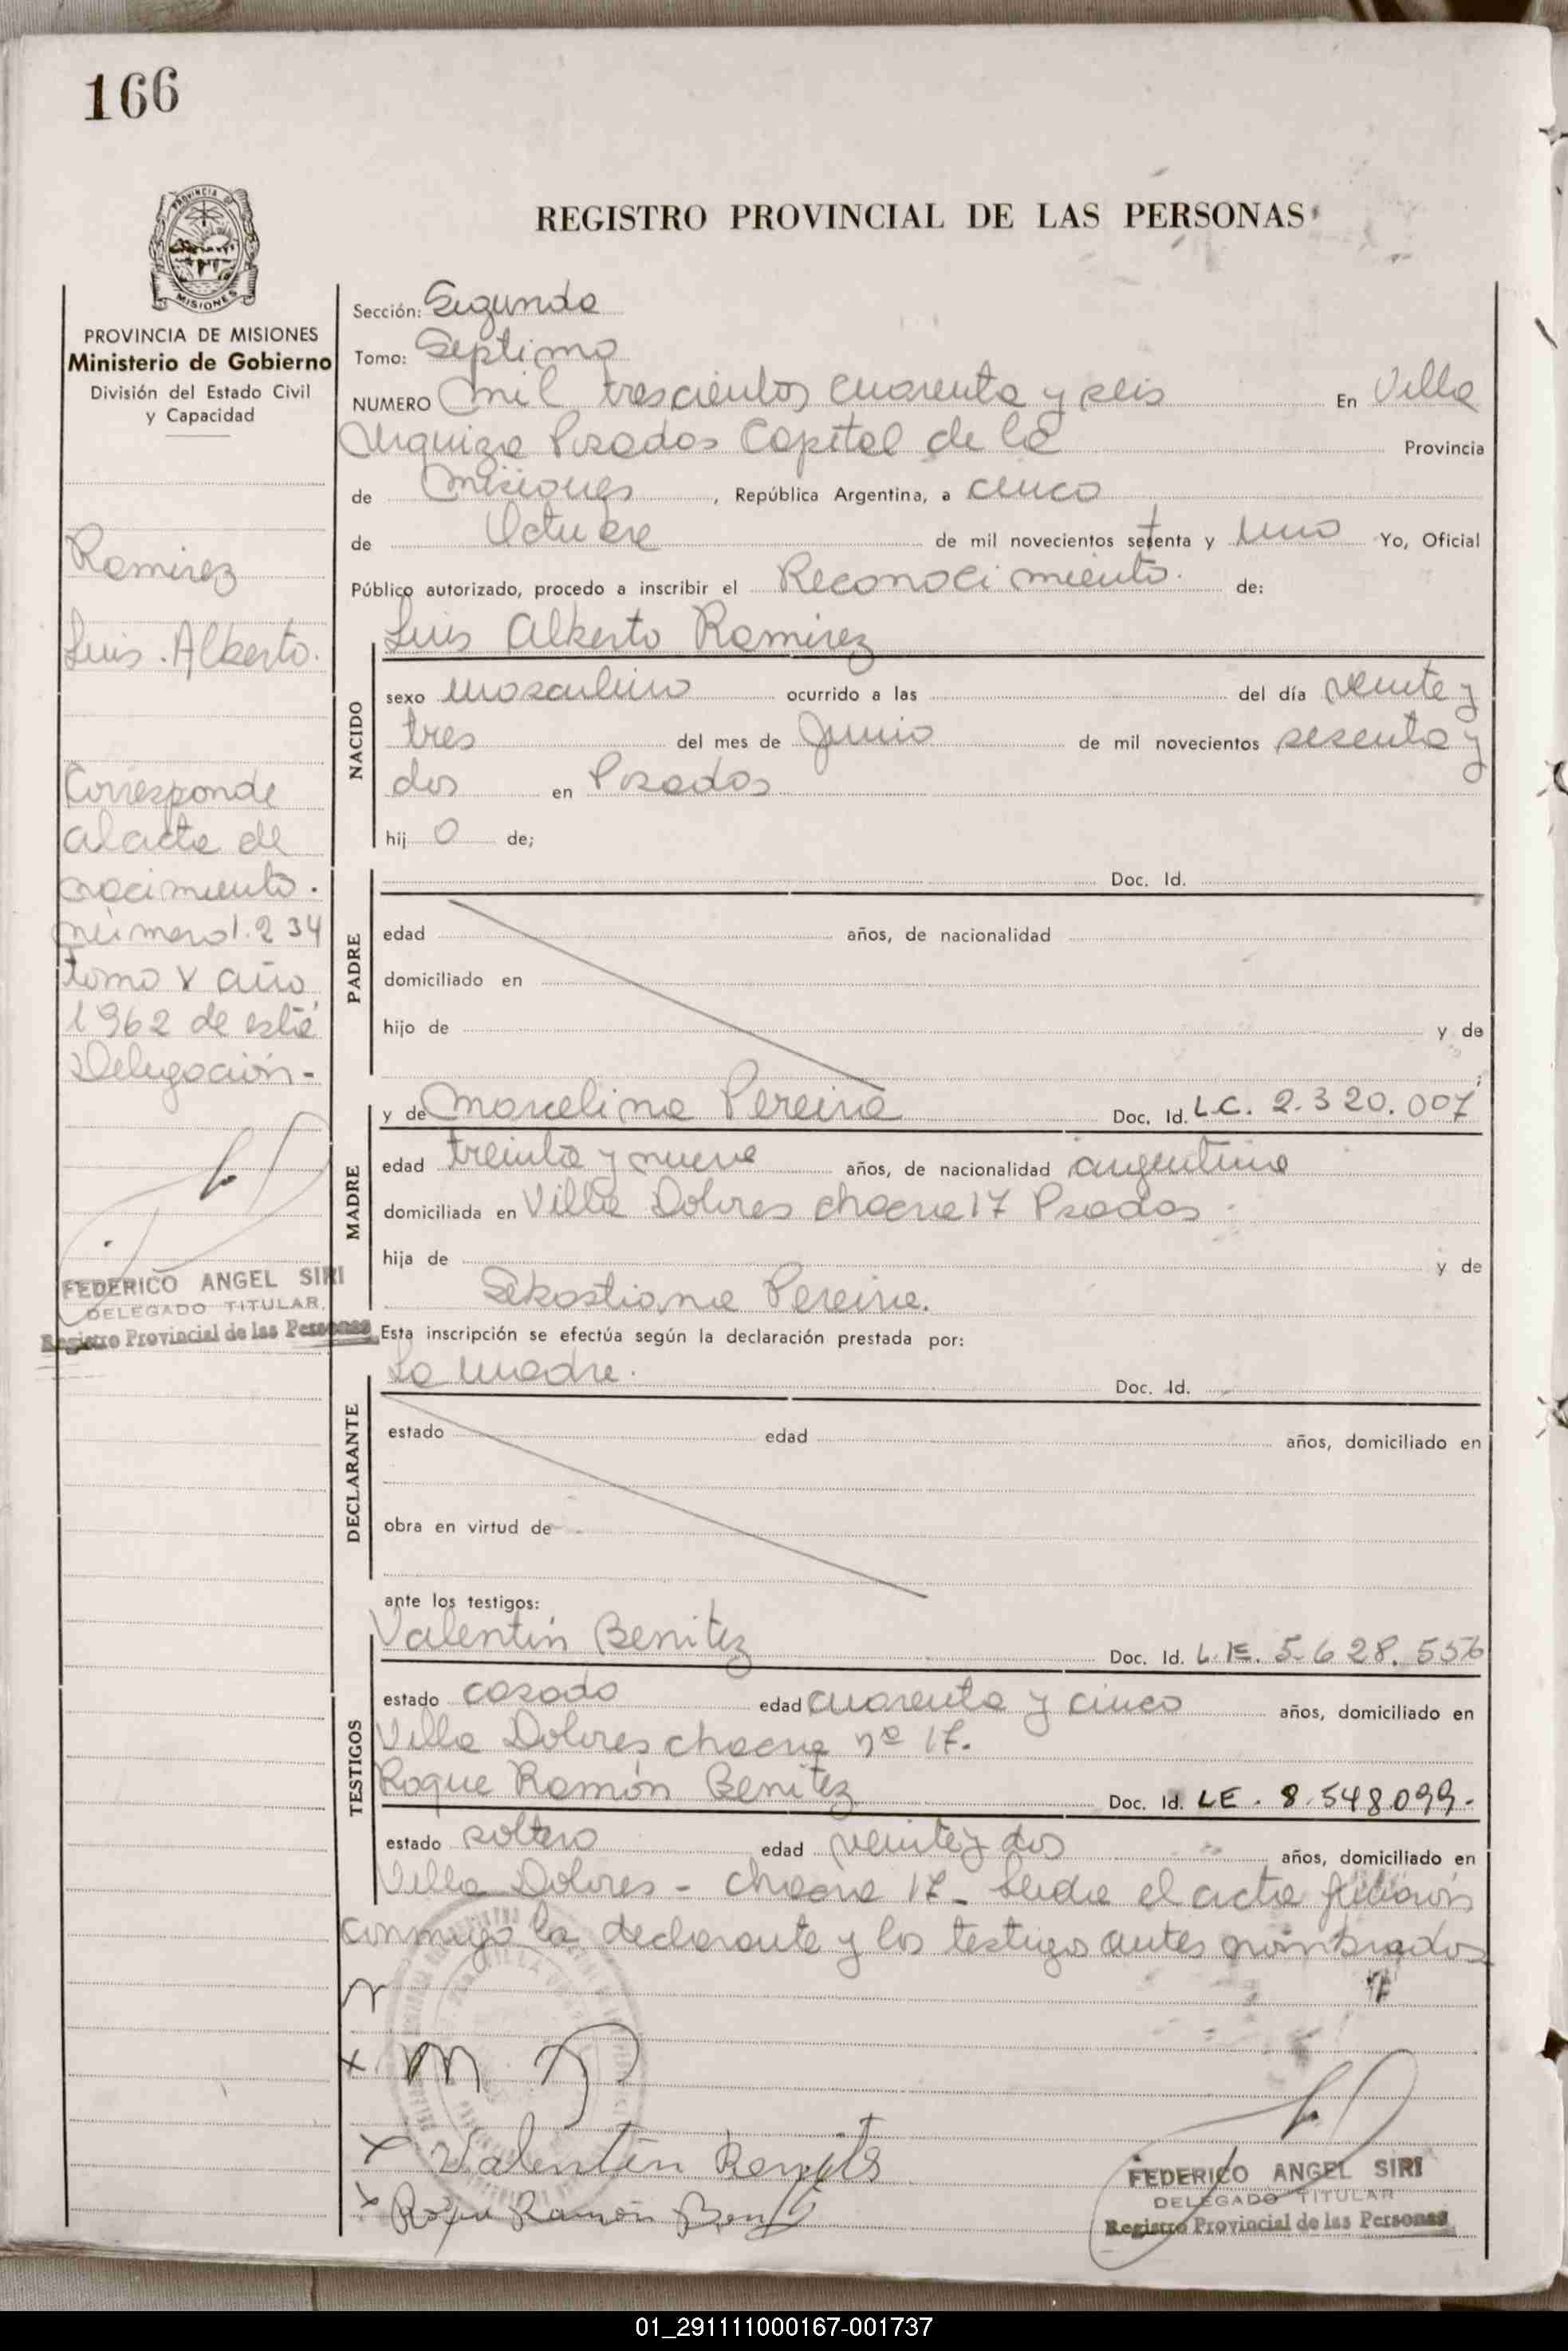 166
REGISTRO PROVINCIAL DE LAS PERSONAS
PROVINCIA DE MISIONES
Ministerio de Gobierno
División del Estado Civil
y Capacidad
Ramirez
Luis. Alberto.
Corresponde
al acta de
nacimiento.
número 1.234
tomo V año
1962 de esta
Delegación-
FEDERICO ANGEL SIRI
DELEGADO TITULAR
Registro Provincial de las Personas
Sección: Segunda
Tomo: Septimo
NUMERO mil trescientos cuarenta y seis En Villa
Urquiza Posadas Capital de la Provincia
de Misiones, República Argentina, a cinco
de Octubre de mil novecientos setenta y uno Yo, Oficial
Público autorizado, procedo a inscribir el Reconocimiento. de:
Luis Alberto Ramirez
NACIDO
sexo masculino ocurrido a las del día veinte y
tres del mes de Junio de mil novecientos sesenta y
dos en Posadas
hij o de;
PADRE
Doc. Id.
edad años, de nacionalidad
domiciliado en
hijo de y de
MADRE
y de Marcelina Pereira Doc. Id. L.C. 2.320.007
edad treinta y nueve años, de nacionalidad argentina
domiciliada en Villa Dolores chacra 17 Posadas.
hija de y de
Sebastiana Pereira.
Esta inscripción se efectúa según la declaración prestada por:
DECLARANTE
La madre. Doc. Id.
estado edad años, domiciliado en
obra en virtud de
ante los testigos:
TESTIGOS
Valentín Benitez Doc. Id. L.E. 5.628.556
estado casado edad cuarenta y cinco años, domiciliado en
Villa Dolores chacra nº 17.
Roque Ramón Benitez Doc. Id. LE. 8.548.099.
estado soltero edad veinte y dos años, domiciliado en
Villa Dolores - chacra 17- Leída el acta firman
conmigo la declarante y los testigos antes nombrados
x M P
x Valentín Benites
x Roque Ramón Benitez
FEDERICO ANGEL SIRI
DELEGADO TITULAR
Registro Provincial de las Personas
01_291111000167-001737